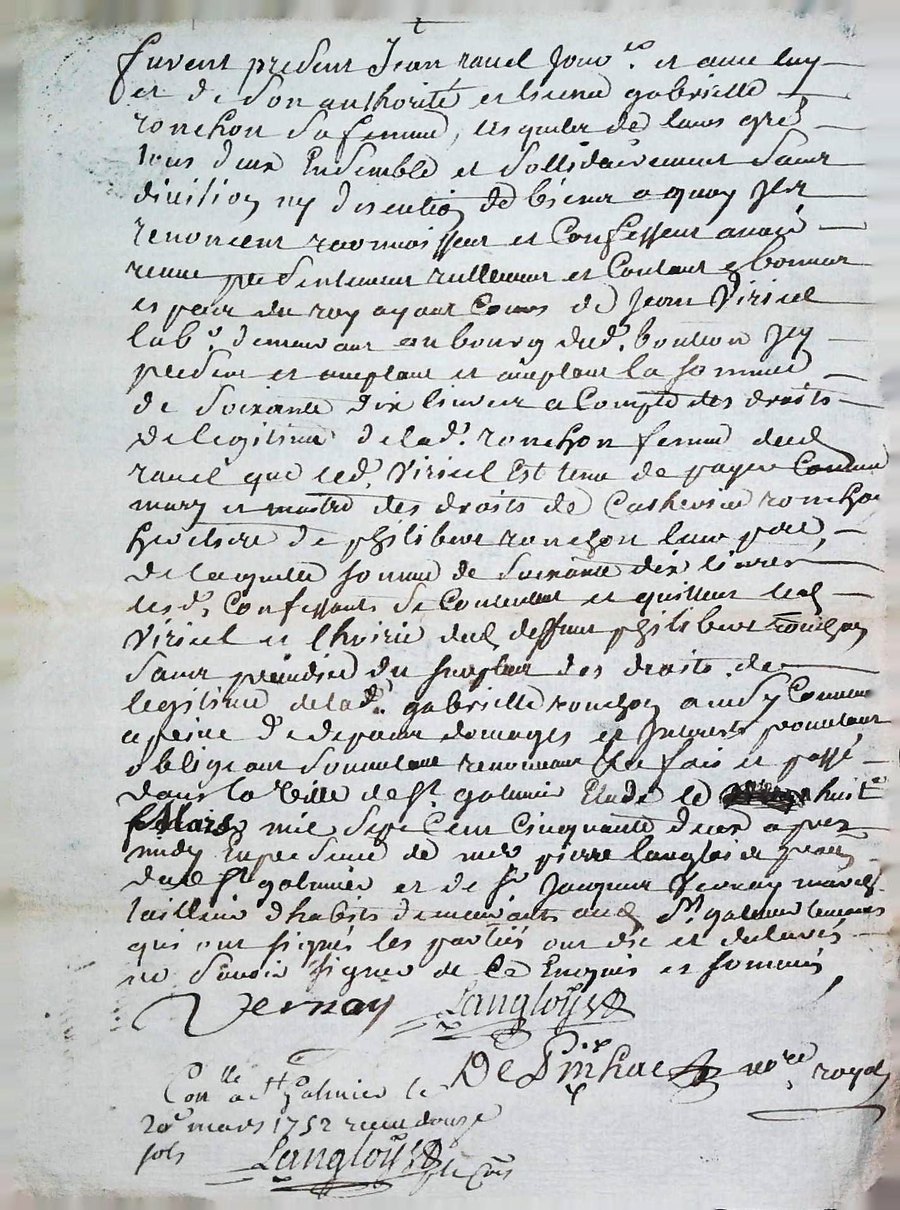 furent presents Jean ravel Jour.er et avec luy
et de son authorité etienne gabrielle
ronchon sa femme, lesquels de leurs grés
tous deux Ensemble et Sollidairement Sans
division ny discution de biens a quoy Ils
renoncent reconnoissent et Confessent avoir
receu presentement reellement et Contant en bonnes
especes du roy ayant Cours de Jean Viricel
lab.r demeurant au bourg dud. Icy
present et acceptant la somme
de Soixante dix livres a Compte des droits
de legitime de lad. ronchon femme dud
ravel que led. Viricel Est tenu de payer Comme
mary et maitre des droits de Catherine ronchon
heritiere de philibert ronchon leur pere,
de laquelle somme de Soixante dix livres
lesd. Confessants Se Contentent et quittent led
Viricel et l'hoirie dud deffunt philibert ronchon
Sans prejudice du surplus des droits de
legitime de lad. gabrielle ronchon ainsy Convenu
a peine de depans domages et Interests promettant
obligeant Soumettant renonceant &ca fait et passé
dans la Ville de St galmier Etude le huit.e
Mars mil Sept Cent Cinquante deux apres
midy En presence de me pierre langlois
dud St galmier et de Sr Jacques Vernay
tailleur d'habits demeurants aud St galmier temoins
qui ont signés les parties ont dit et declarés
ne Savoir signer de Ce Enquis et sommés
Vernay Langloys
De Pinhac no.re royal
Con.lle a St Galmier le
20e mars 1752 receu douze
sols Langloys